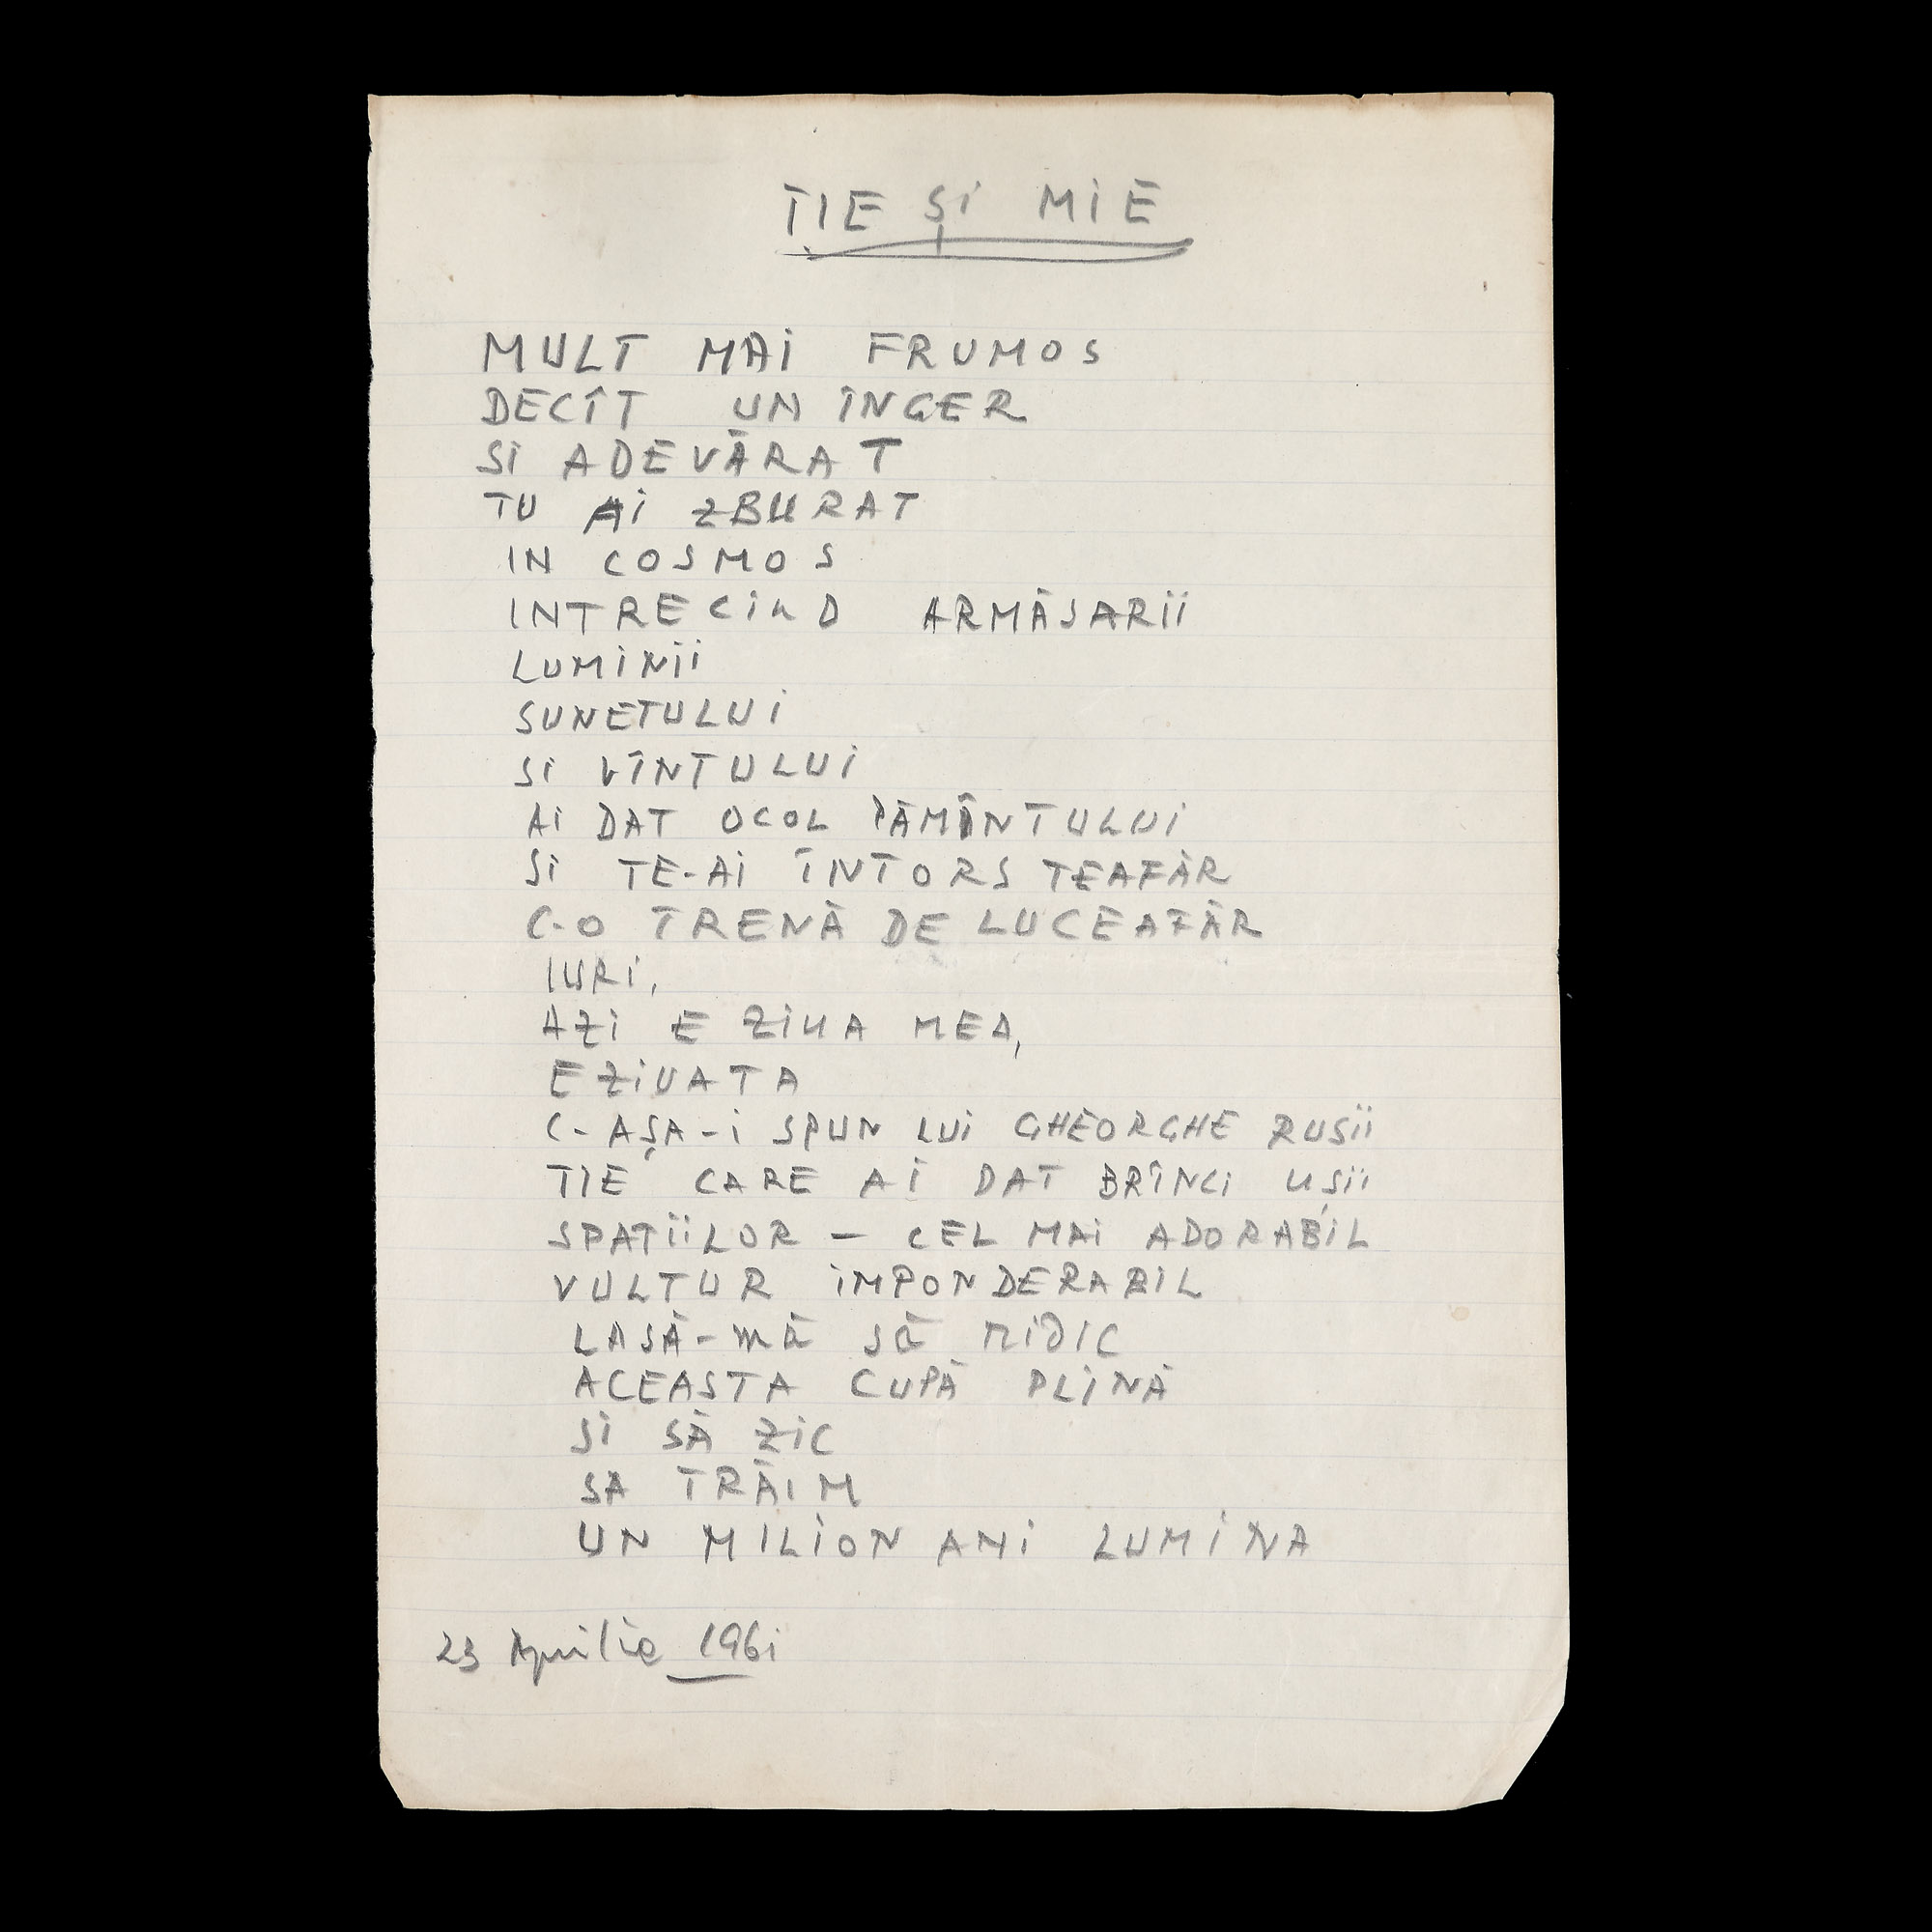 TIE ȘI MIE
MULT MAI FRUMOS
DECÎT UN ÎNGER
SI ADEVĂRAT
TU AI ZBURAT
IN COSMOS
INTRECIND ARMĂSARII
LUMINII
SUNETULUI
SI VÎNTULUI
AI DAT OCOL PĂMÎNTULUI
SI TE-AI ÎNTORS TEAFĂR
C-O TRENĂ DE LUCEAFĂR
IURI,
AZI E ZIUA MEA,
E ZIUA TA
C-AȘA-I SPUN LUI GHEORGHE RUSII
TIE CARE AI DAT BRÎNCI UȘII
SPAȚIILOR — CEL MAI ADORABIL
VULTUR IMPONDERABIL
LASĂ-MĂ SĂ RIDIC
ACEASTA CUPĂ PLINĂ
SI SĂ ZIC
SA TRĂIM
UN MILION ANI LUMINA
23 Aprilie 1961